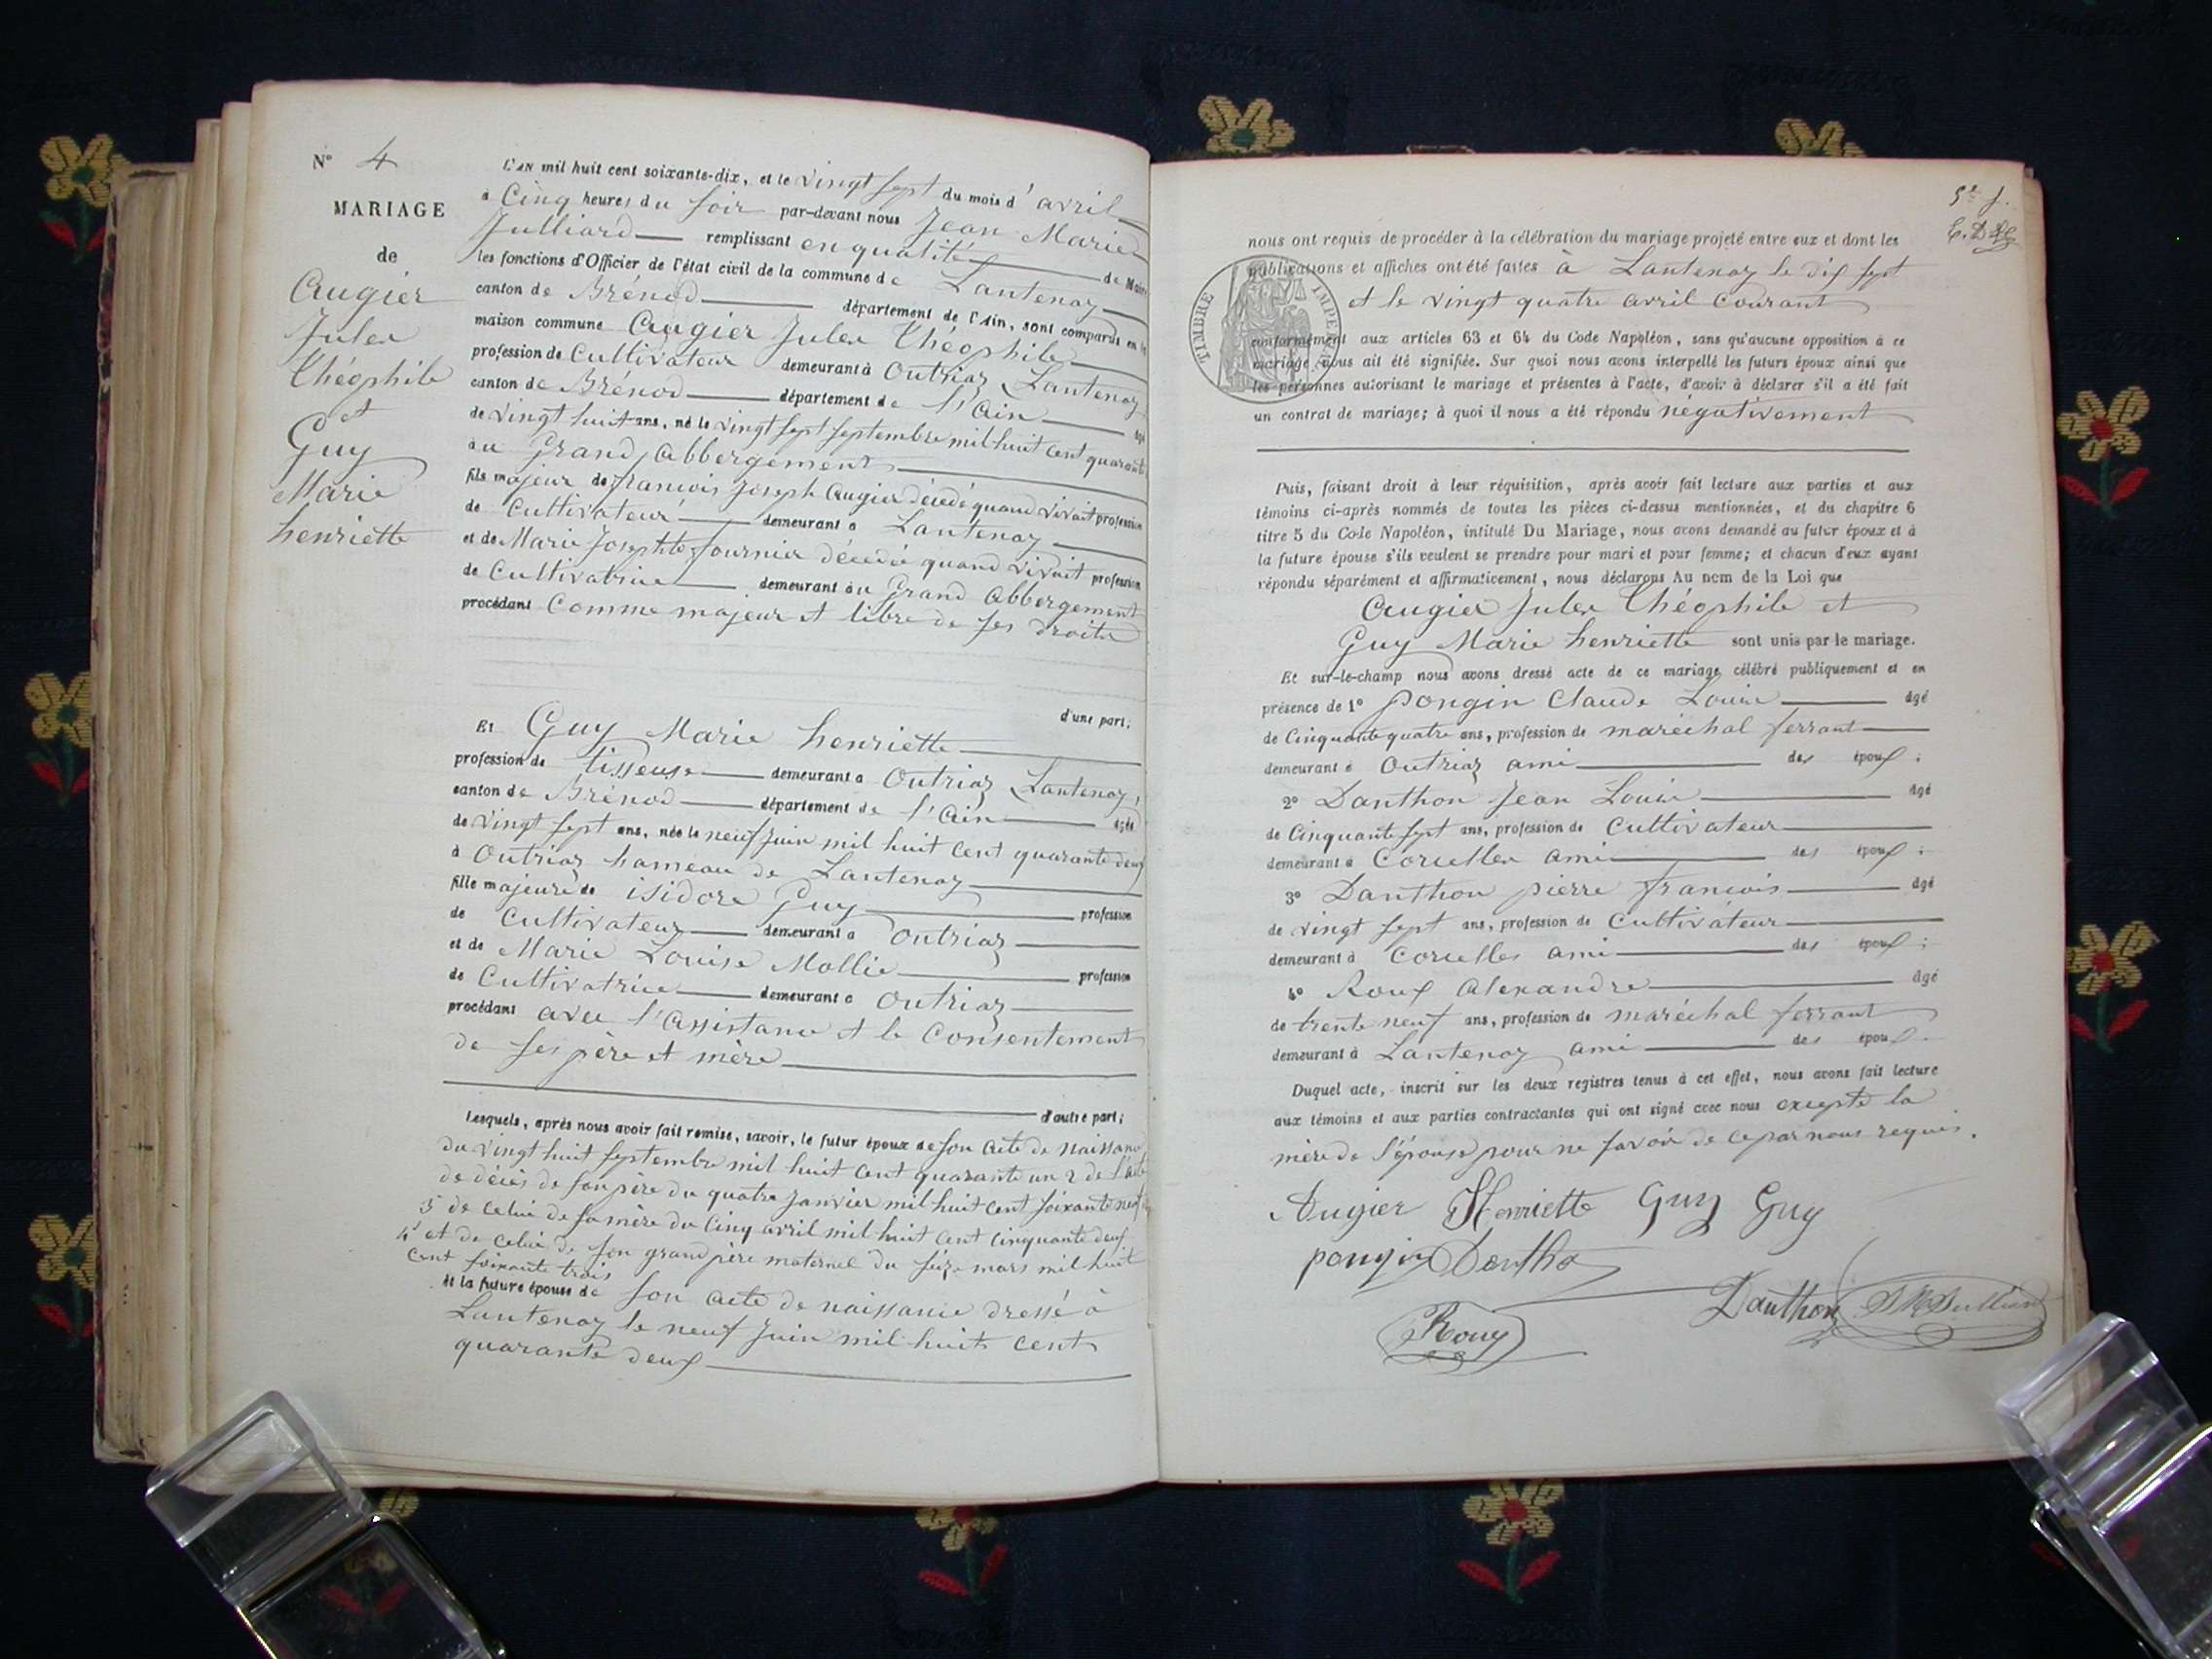 N° 4
MARIAGE
de
Augier
Jules
Théophile
et
Guy
Marie
henriette
L'AN mil huit cent soixante-dix, et le vingt sept du mois d'avril
à Cinq heures du soir par-devant nous Jean Marie
Julliard remplissant en qualité de Maire
les fonctions d'Officier de l'état civil de la commune de Lantenay
canton de Brénod département de l'Ain, sont comparus en la
maison commune Augier Jules Théophile
profession de Cultivateur demeurant à Outriaz Lantenay
canton de Brénod département de l'Ain âgé
de vingt huit ans, né le vingt sept septembre mil huit cent quarante
au Grand Abbergement
fils majeur de francois Joseph Augier décédé quand vivait profession
de Cultivateur demeurant à Lantenay
et de Marie Josephte fournier décédée quand vivait profession
de Cultivatrice demeurant au Grand Abbergement
procédant Comme majeur et libre de ses droits
d'une part;
Et Guy Marie henriette
profession de tisseuse demeurant à Outriaz Lantenay,
canton de Brénod département de l'Ain âgée
de vingt sept ans, née le neuf Juin mil huit cent quarante deux
à Outriaz hameau de Lantenay
fille majeure de isidore Guy profession
de Cultivateur demeurant à Outriaz
et de Marie Louise Mollie profession
de Cultivatrice demeurant à Outriaz
procédant avec l'assistance et le Consentement
de ses père et mère
d'autre part;
Lesquels, après nous avoir fait remise, savoir, le futur époux de son acte de naissance
du vingt huit septembre mil huit cent quarante un 2 de l'acte
de décès de son père du quatre janvier mil huit cent soixante neuf
3° de celui de sa mère du Cinq avril mil huit cent cinquante deux
4° et de celui de son grand père maternel du seize mars mil huit
cent soixante trois
et la future épouse de son acte de naissance dressé à
Lantenay le neuf Juin mil huit cent
quarante deux
nous ont requis de procéder à la célébration du mariage projeté entre eux et dont les
publications et affiches ont été faites à Lantenay le dix sept
et le vingt quatre avril courant
TIMBRE IMPERIAL
conformément aux articles 63 et 64 du Code Napoléon, sans qu'aucune opposition à ce
mariage nous ait été signifiée. Sur quoi nous avons interpellé les futurs époux ainsi que
les personnes autorisant le mariage et présentes à l'acte, d'avoir à déclarer s'il a été fait
un contrat de mariage; à quoi il nous a été répondu négativement
Puis, faisant droit à leur réquisition, après avoir fait lecture aux parties et aux
témoins ci-après nommés de toutes les pièces ci-dessus mentionnées, et du chapitre 6
titre 5 du Code Napoléon, intitulé Du Mariage, nous avons demandé au futur époux et à
la future épouse s'ils veulent se prendre pour mari et pour femme; et chacun d'eux ayant
répondu séparément et affirmativement, nous déclarons Au nom de la Loi que
Augier Jules Théophile et
Guy Marie henriette sont unis par le mariage.
Et sur-le-champ nous avons dressé acte de ce mariage célébré publiquement et en
présence de 1° Pongin Claude Louis âgé
de Cinquante quatre ans, profession de maréchal ferrant
demeurant à Outriaz ami des époux;
2° Danthon Jean Louis âgé
de Cinquante sept ans, profession de Cultivateur
demeurant à Corcelles ami des époux;
3° Danthon pierre francois âgé
de vingt sept ans, profession de Cultivateur
demeurant à Corcelles ami des époux;
4° Roux Alexandre âgé
de trente neuf ans, profession de maréchal ferrant
demeurant à Lantenay ami des époux.
Duquel acte, inscrit sur les deux registres tenus à cet effet, nous avons fait lecture
aux témoins et aux parties contractantes qui ont signé avec nous excepté la
mère de l'épouse pour ne savoir de ce par nous requis.
Augier Henriette Guy Guy
pongin Dantho
Danthon JM Julliard
Roux